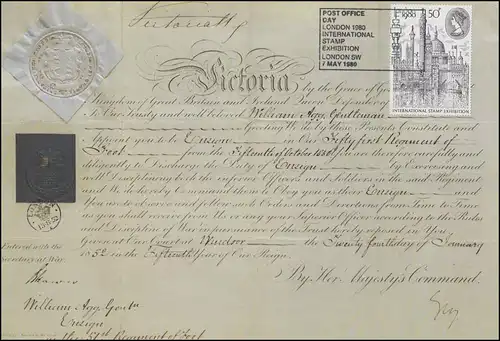 Victoria R
POST OFFICE
DAY
LONDON 1980
INTERNATIONAL
STAMP
EXHIBITION
LONDON SW
7 MAY 1980
1980 50p
INTERNATIONAL STAMP EXHIBITION
Victoria by the Grace of God
Kingdom of Great Britain and Ireland Queen Defender of
To Our Trusty and well beloved William Agg Gentleman
Greeting We do by these Presents Constitute and
Appoint you to be Ensign in Our Fifty first Regiment of
Foot from the Fifteenth of October 1850 You are therefore carefully and
diligently to Discharge the Duty of Ensign by Exercising and
well Disciplining both the inferior Officers and Soldiers in that Regiment
and We do hereby Command them to Obey you as their Ensign And
You are to observe and follow such Orders and Directions from Time to Time
as you shall receive from Us or any your Superior Officer according to the Rules
and Discipline of War in pursuance of the Trust hereby reposed in You
Given at Our Court at Windsor the Twenty fourth day of January
1852 in the Fifteenth Year of Our Reign
By Her Majesty's Command.
Entered with the
Secretary at War
William Agg Gent
Ensign
in the 51st Regiment of Foot